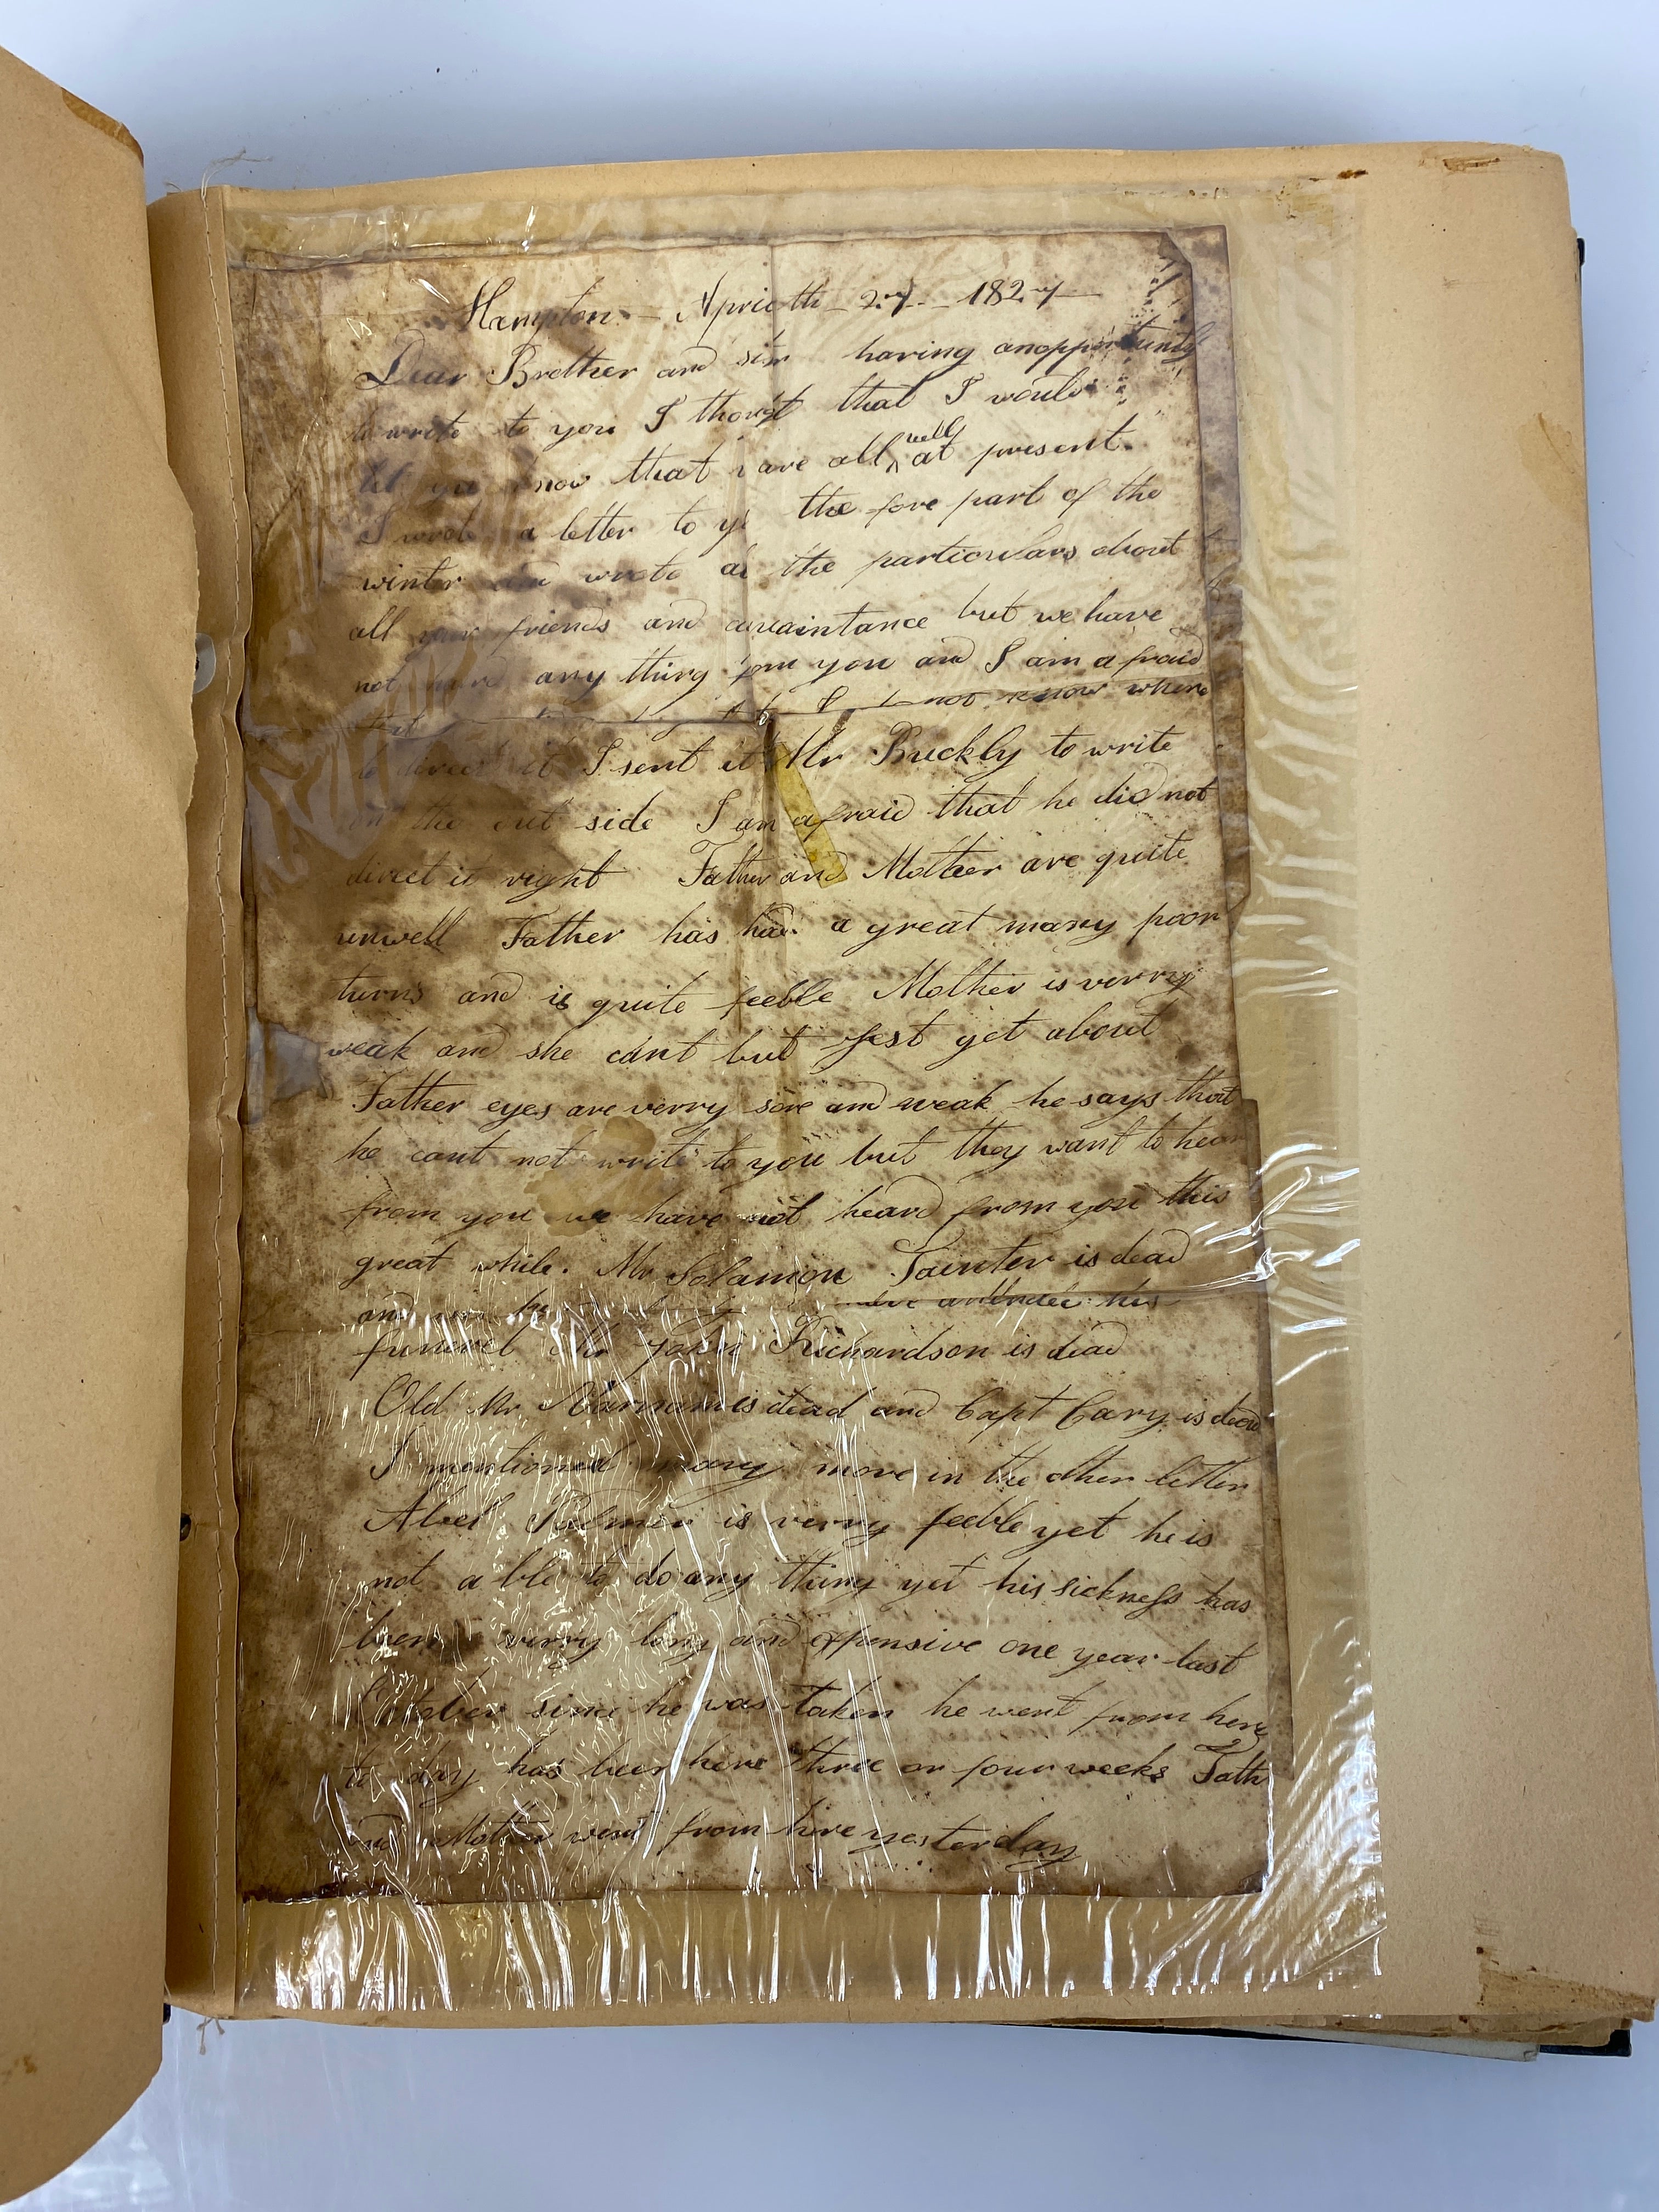 Hampton - April th - 27 - 1827
Dear Brother and sister having anoppertunity
to write to you I thought that I would
let you know that we are all well at present
I wrote a letter to you the fore part of the
winter and wrote all the particulars about
all your friends and acquaintance but we have
not heard any thing from you and I am a fraid
not know where
to direct it I sent it Mr Buckly to write
on the out side I am afraid that he did not
direct it right Father and Mother are quite
unwell Father has had a great many poor
turns and is quite feeble Mother is verry
weak and she cant but jest get about
Father eyes are verry sore and weak he says that
he cant not write to you but they want to hear
from you we have not heard from you this
great while. Mr Solamon Tainter is dead
and his
funerel Mr John Richardson is dead
Old Mr is dead and Capt Cary is dead
I mentioned many more in the other letter
Abel is verry feeble yet he is
not a ble to do any thing yet his sickness has
been a verry long and expensive one year last
October since he was taken he went from here
to day has been here three or four weeks Fath
and Mother went from here yesterday